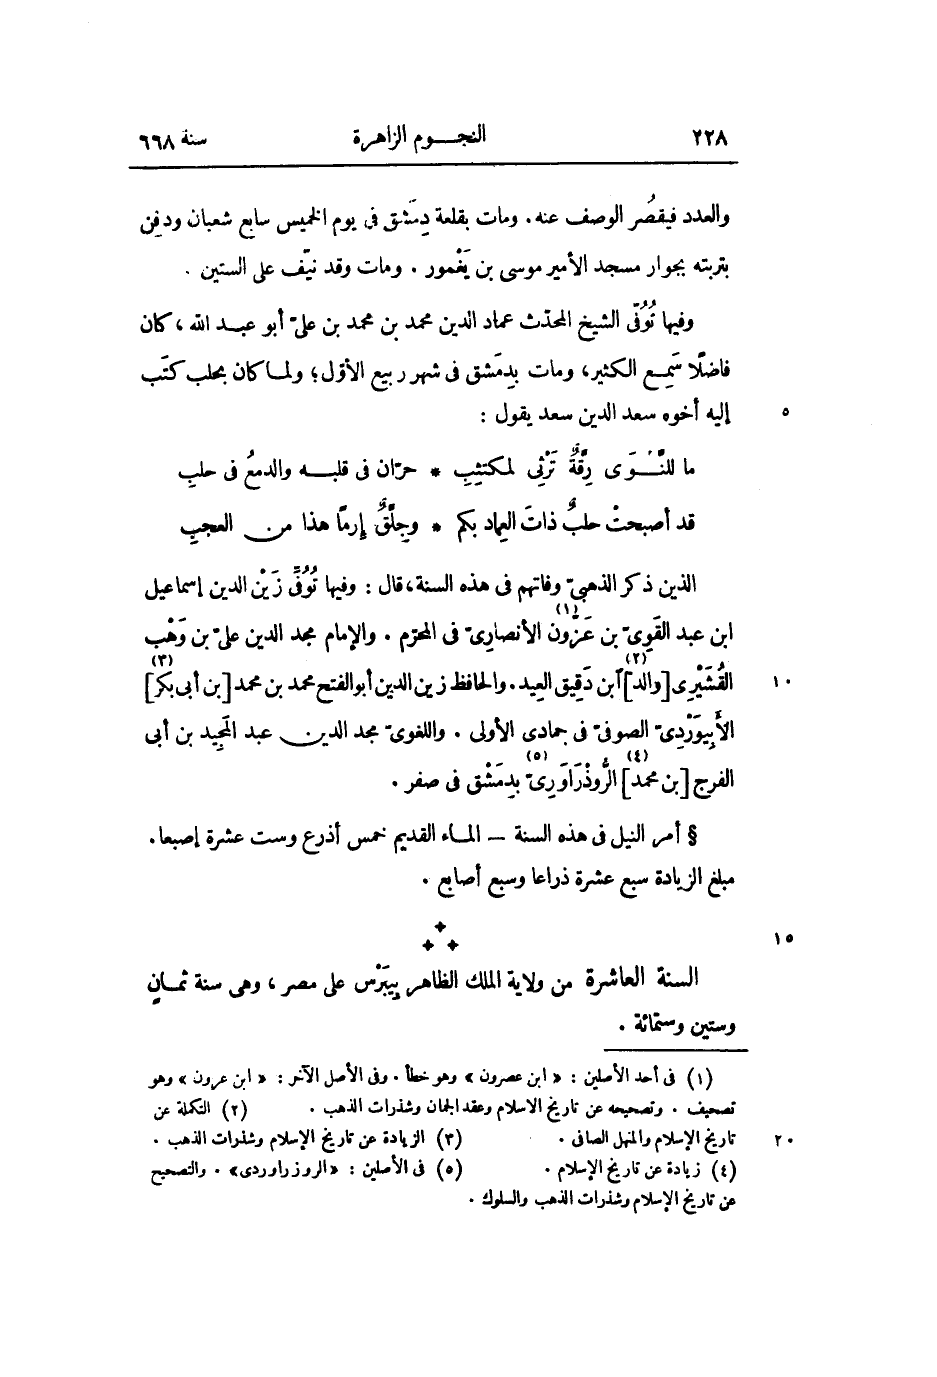 ٢٢٨ النجــوم الزاهرة سنة ٦٦٨
والعدد فيقصُر الوصف عنه. ومات بقلعة دِمَشق فى يوم الخميس سابع شعبان ودفِن
بتربته بجوار مسجد الأمير موسى بن يَغْمور . ومات وقد نيّف على الستين .
وفيها تُوُفّى الشيخ المحدّث عماد الدين محمد بن محمد بن علىّ أبو عبد الله ، كان
فاضلًا سَمِع الكثير، ومات بدِمَشق فى شهر ربيع الأوّل؛ ولما كان بحلب كتَب
إليه أخوه سعد الدين سعد يقول : ٥
ما للنَّوَى رِقّةٌ تَرْثِى لمكتئِبِ * حرّان فى قلبه والدمعُ فى حلبِ
قد أصبحتْ حلبٌ ذاتَ العِماد بكم * وجِلّقٌ إرمًا هذا من العجبِ
الذين ذكر الذهبىّ وفاتهم فى هذه السنة، قال : وفيها تُوُفّى زَيْن الدين إسماعيل
ابن عبد القَوِىّ بن عَزّون (١) الأنصارىّ فى المحرّم . والإمام مجد الدين علىّ بن وَهْب
القُشَيْرِى [والد] (٢) آبن دَقِيق العِيد . والحافظ زين الدين أبو الفتح محمد بن محمد [بن أبى بكر] (٣) ١٠
الأَبِيوَرْدِىّ الصوفىّ فى جمادى الأولى . واللغوىّ مجد الدين عبد المجيد بن أبى
الفرج [بن محمد] (٤) الرُّوذْرَاوَرِىّ (٥) بدِمَشْق فى صفر .
§ أمر النيل فى هذه السنة — المـاء القديم خمس أذرع وست عشرة إصبعا .
مبلغ الزيادة سبع عشرة ذراعا وسبع أصابع .
١٥
السنة العاشرة من ولاية الملك الظاهر بِيبَرْس على مصر ، وهى سنة ثمـانٍ
وستين وستمائة .
(١) فى أحد الأصلين : «ابن عصرون» وهو خطأ . وفى الأصل الآخر : «ابن عرون» وهو
تصحيف . وتصحيحه عن تاريخ الاسلام وعقد الجمان وشذرات الذهب . (٢) التكملة عن
تاريخ الإسلام والمنهل الصافى . (٣) الزيادة عن تاريخ الإسلام وشذرات الذهب . ٢٠
(٤) زيادة عن تاريخ الإسلام . (٥) فى الأصلين : «الروزراوردى» . والتصحيح
عن تاريخ الإسلام وشذرات الذهب والسلوك .